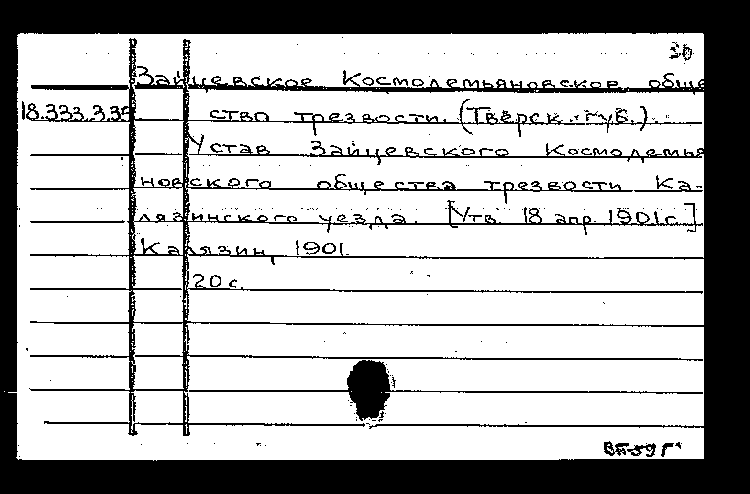 30
Зайцевское Космодемьяновское обще
18.333.3.35. ство трезвости. (Тверск. губ.).
Устав Зайцевского Космодемья
новского общества трезвости Ка-
лязинского уезда. [Утв. 18 апр. 1901 г.]
Калязин, 1901.
20 с.